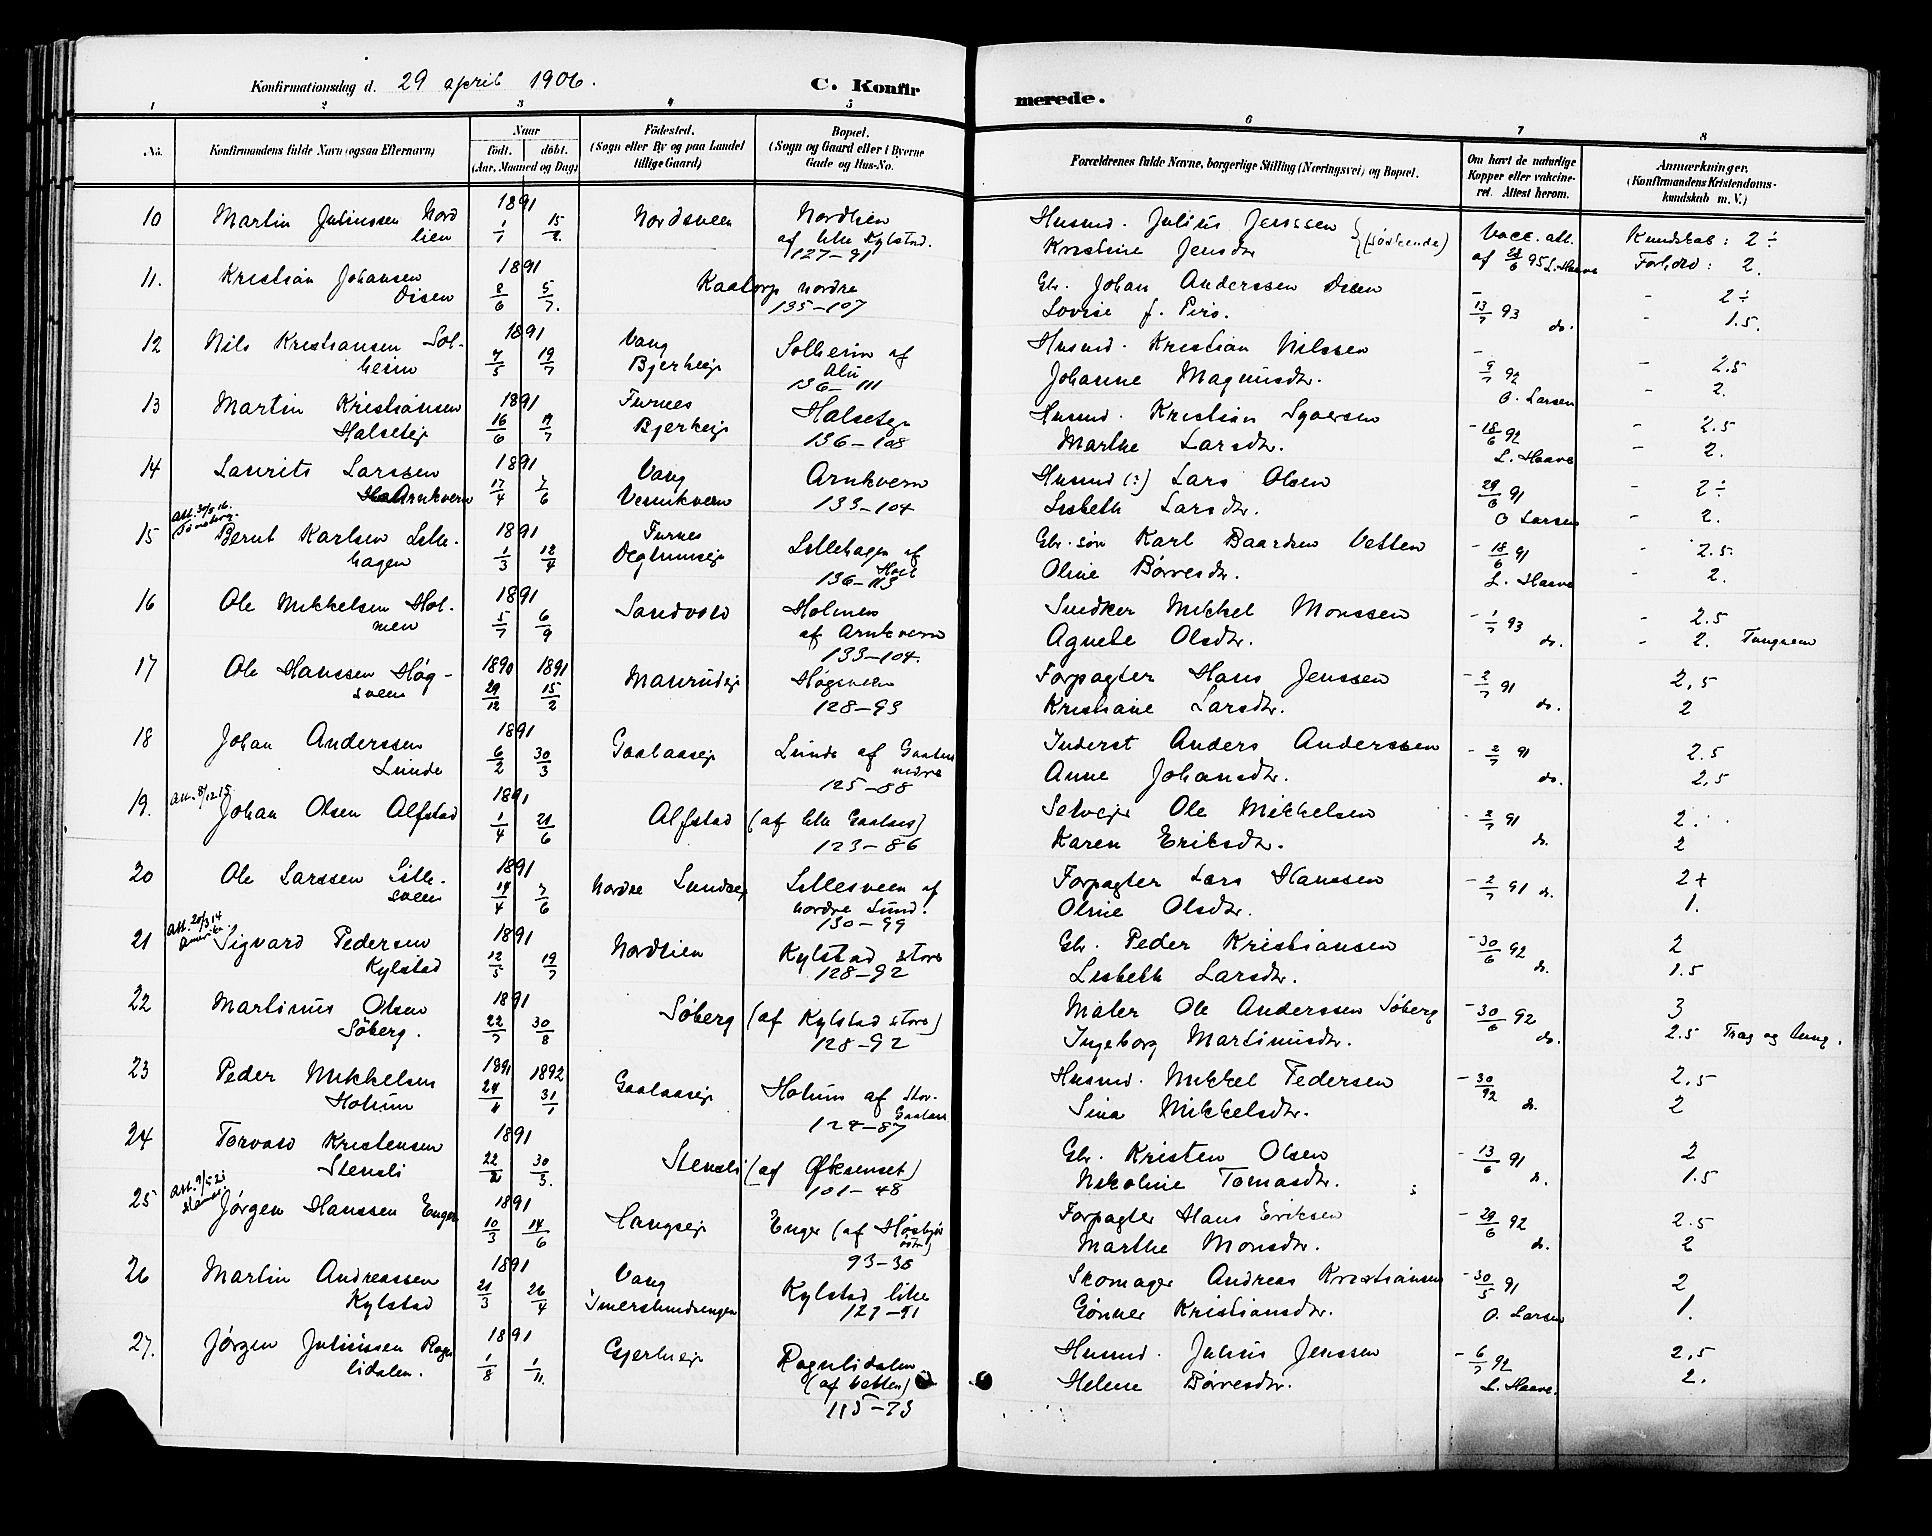 Konfirmationsdag d. 29 april 1906.
C. Konfirmerede.
1 2 3 4 5 6 7 8
No.
Konfirmandens fulde Navn (ogsaa Efternavn)
Naar
født. døbt.
(Aar, Maaned og Dag)
Fødested.
(Sogn eller By og paa Landet
tillige Gaard)
Bopæl.
(Sogn og Gaard eller i Byerne
Gade og Hus-No.
Forældrenes fulde Navne, borgerlige Stilling (Næringsvei) og Bopæl.
Om havt de naturlige
Kopper eller vakcine-
ret. Attest herom.
Anmærkninger.
(Konfirmandens Kristendoms-
kundskab m. V.)
10 Martin Juliussen Nord 1891 Nordsveen Nordlien Husmd. Julius Jenssen (søskende) Vacc. att. Kundskab: 2÷
lien 1/1 15/2 af lille Kylstad. Kristine Jensdtr af 28/6 95 L. Haave Forhold: 2.
127-91
11. Kristian Johansen 1891 Kaatorp nordre Gbr. Johan Anderssen Disen - 2÷
Disen 8/6 5/7. 135-107 Lovise f. Piro. 13/7 93 do. - 1.5.
12 Nils Kristiansen Sol- 1891 Vang Solheim af Husmd. Kristian Nilssen
heim 7/5 19/7 Bjerkeeje Alu Johanne Magnusdtr. 9/7 92 - 2.5
136-111 O. Larsen - 2.
13 Martin Kristiansen 1891 Furnes Halseteje Husmd. Kristian Syversen - 18/6 92 - 2.5
Halseteje 16/6 19/7 Bjerkeeje 136-108 Marthe Larsdtr. L. Haave - 2.
14 Laurits Larssen 1891 Vang Arnkvern Husmd (?) Lars Olsen 29/6 91 - 2÷
Arnkvern 17/4 7/6 133-104 Lisbeth Larsdtr. O Larsen - 2.
15 Bernt Karlsen Lille- 1891 Furnes Lillehagen af Gbr. søn Karl Baardsen Vetten - 18/6 91 - 2.5
hagen 1/3 12/4 Deglumseje Hoel Oline Børresdtr. L. Haave - 2.
136-113
16 Ole Mikkelsen Hol- 1891 Sandvold Holmen Snedker Mikkel Monssen - 1/7 93 - 2.5
men 5/7 6/9 af Arnkvern Agnete Olsdtr. do. - 2. Tungnem
133-104.
17 Ole Hanssen Høg- 1890 1891 Maurudeje Høgsveen Forpagter Hans Jenssen - 2/7 91 2,5
sveen 29/12 15/2 128-93 Kristiane Larsdtr. do. 2
18 Johan Anderssen 1891 Gaalaaseje Lunde af Gaalaas Inderst Anders Anderssen - 2/7 91 2.5
Lunde 6/2 30/3 nedre Anne Johansdtr. do. 2,5
125-88
19. Att. 8/12 15. Johan Olsen Alfstad 1891 Alfstad (af lille Gaalaas) Selveje Ole Mikkelsen - 2/7 91 2.
1/4 21/6 123-86 Karen Eriksdtr. do. 2
20 Ole Larssen Lille- 1891 Nordre Lundseje Lillesveen af Forpagter Lars Hanssen - 2/7 91 do. 2+
sveen 14/4 7/6 nordre Lund. Oline Olsdtr. 1.
130-99
21 Att. 20/3 14 Amerika Sigvard Pedersen 1891 Nordlien Kylstad store Gbr. Peder Kristiansen - 30/6 92 2
Kylstad 12/5 19/7 128-92 Lisbeth Larsdtr. do. 1.5
22 Martinus Olsen 1891 Søberg (af Kylstad store) Maler Ole Anderssen Søberg - 30/6 92 3
Søberg. 22/7 30/8 128-92 Ingeborg Martinusdtr. do. 2.5 Træg og tung.
23 Peder Mikkelsen 1891 1892 Gaalaaseje Holum af Stor- Husmd. Mikkel Pedersen - 30/92 2,5
Holum 31/1 Gaalaas Sina Mikkelsdtr. do. 2
124-87
24 Torvald Kristensen 1891 Stensli (af Øksenset) Gbr. Kristen Olsen - 13/6 91 2
Stensli 22/2 30/3. 101-48 Nikoline Tomasdtr. do. 1.5
25 Jørgen Hanssen Enger 1891 Haugseje Enger (af Høsbjør Forpagter Hans Eriksen - 29/6 92 2.5
10/3 14/6 østre) Marthe Monsdtr. do. 2
93-38
26 Martin Andreassen 1891 Vang Kylstad lille Skomager Andreas Kristiansen - 30/5 91 2
Kylstad 21/3 26/4 127-91 Gønner Kristiansdtr. O. Larsen 1.
27. Jørgen Juliussen Ragn 1891 Gjerlueje Ragnlidalen Husmd. Julius Jenssen - 6/7 92 2,5
lidalen. 1/8 1/11. (af Vetten) Helene Børresdtr. L. Haave. 2.
115-73